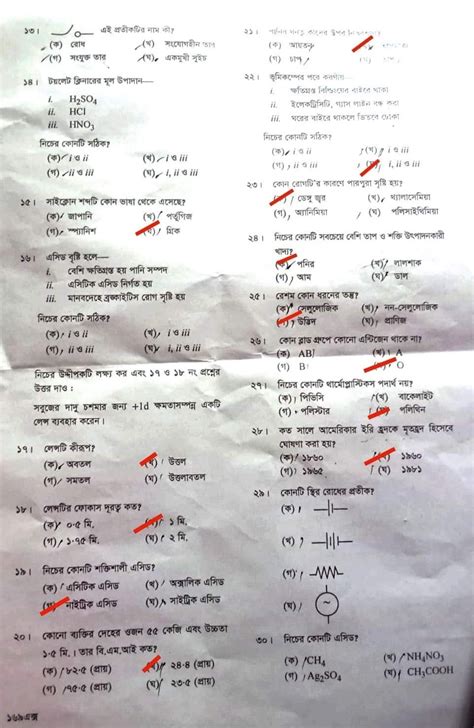 ১৩। এই প্রতীকটির নাম কী?
(ক) রোধ (খ) সংযোগহীন তার
(গ) সংযুক্ত তার (ঘ) একমুখী সুইচ
১৪। টয়লেট ক্লিনারের মূল উপাদান—
i. H₂SO₄
ii. HCl
iii. HNO₃
নিচের কোনটি সঠিক?
(ক) i ও ii (খ) i ও iii
(গ) ii ও iii (ঘ) i, ii ও iii
১৫। সাইক্লোন শব্দটি কোন ভাষা থেকে এসেছে?
(ক) জাপানি (খ) পর্তুগিজ
(গ) স্প্যানিশ (ঘ) গ্রিক
১৬। এসিড বৃষ্টি হলে—
i. বেশি ক্ষতিগ্রস্ত হয় পানি সম্পদ
ii. এসিটিক এসিড নির্গত হয়
iii. মানবদেহে ব্রঙ্কাইটিস রোগ সৃষ্টি হয়
নিচের কোনটি সঠিক?
(ক) i ও ii (খ) i ও iii
(গ) ii ও iii (ঘ) i, ii ও iii
নিচের উদ্দীপকটি লক্ষ্য কর এবং ১৭ ও ১৮ নং প্রশ্নের
উত্তর দাও :
সবুজের দাদু চশমার জন্য +1d ক্ষমতাসম্পন্ন একটি
লেন্স ব্যবহার করেন।
১৭। লেন্সটি কীরূপ?
(ক) অবতল (খ) উত্তল
(গ) সমতল (ঘ) উত্তলাবতল
১৮। লেন্সটির ফোকাস দূরত্ব কত?
(ক) ০·৫ মি. (খ) ১ মি.
(গ) ১·৭৫ মি. (ঘ) ২ মি.
১৯। নিচের কোনটি শক্তিশালী এসিড?
(ক) এসিটিক এসিড (খ) অক্সালিক এসিড
(গ) নাইট্রিক এসিড (ঘ) সাইট্রিক এসিড
২০। কোনো ব্যক্তির দেহের ওজন ৫৫ কেজি এবং উচ্চতা
১·৫ মি.। তার বি.এম.আই কত?
(ক) ৮২·৫ (প্রায়) (খ) ২৪·৪ (প্রায়)
(গ) ৭৫·৫ (প্রায়) (ঘ) ২৩·৫ (প্রায়)
১৬৯এক্স
২১।
(ক) আয়তন
(গ) চাপ
২২। ভূমিকম্পের পরে করণীয়—
i. ক্ষতিগ্রস্ত বিল্ডিংয়ের বাইরে থাকা
ii. ইলেকট্রিসিটি, গ্যাস লাইন বন্ধ করা
iii. ঘরের বাইরে থাকলে ভিতরে ঢোকা
নিচের কোনটি সঠিক?
(ক) i ও ii (খ) i ও iii
(গ) ii ও iii (ঘ) i, ii ও iii
২৩। কোন রোগটির কারণে পারপুরা সৃষ্টি হয়?
(ক) ডেঙ্গু জ্বর (খ) থ্যালাসেমিয়া
(গ) অ্যানিমিয়া (ঘ) পলিসাইথিমিয়া
২৪। নিচের কোনটি সবচেয়ে বেশি তাপ ও শক্তি উৎপাদনকারী
খাদ্য?
(ক) পনির (খ) লালশাক
(গ) আম (ঘ) ডাল
২৫। রেশম কোন ধরনের তন্তু?
(ক) সেলুলোজিক (খ) নন-সেলুলোজিক
(গ) উদ্ভিদ (ঘ) প্রাণিজ
২৬। কোন ব্লাড গ্রুপে কোনো এন্টিজেন থাকে না?
(ক) AB (খ) A
(গ) B (ঘ) O
২৭। নিচের কোনটি থার্মোপ্লাস্টিকস পদার্থ নয়?
(ক) পিভিসি (খ) বাকেলাইট
(গ) পলিস্টার (ঘ) পলিথিন
২৮। কত সালে আমেরিকার ইরি হ্রদকে মৃতহ্রদ হিসেবে
ঘোষণা করা হয়?
(ক) ১৮৬০ (খ) ১৯৬০
(গ) ১৯৬৫ (ঘ) ১৯৮১
২৯। কোনটি স্থির রোধের প্রতীক?
(ক)
(খ)
(গ)
(ঘ)
৩০। নিচের কোনটি এসিড?
(ক) CH₄ (খ) NH₄NO₃
(গ) Ag₂SO₄ (ঘ) CH₃COOH